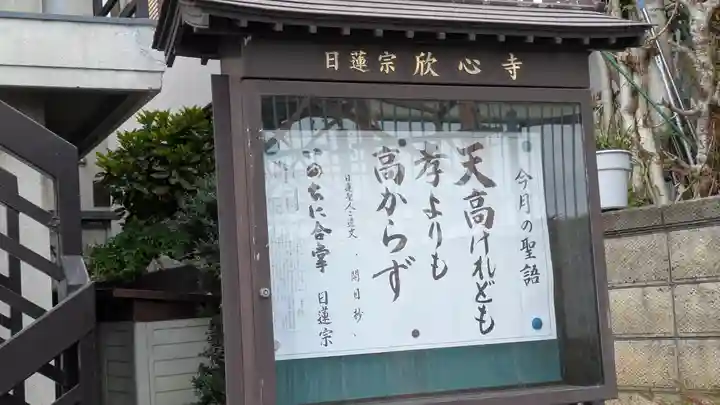 日蓮宗 欣心寺
今月の聖語
天高けれども
孝よりも
高からず
日蓮聖人ご遺文 「開目抄」
いのちに合掌 日蓮宗